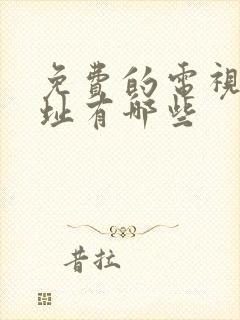 免費的電視
址有哪些
昔拉